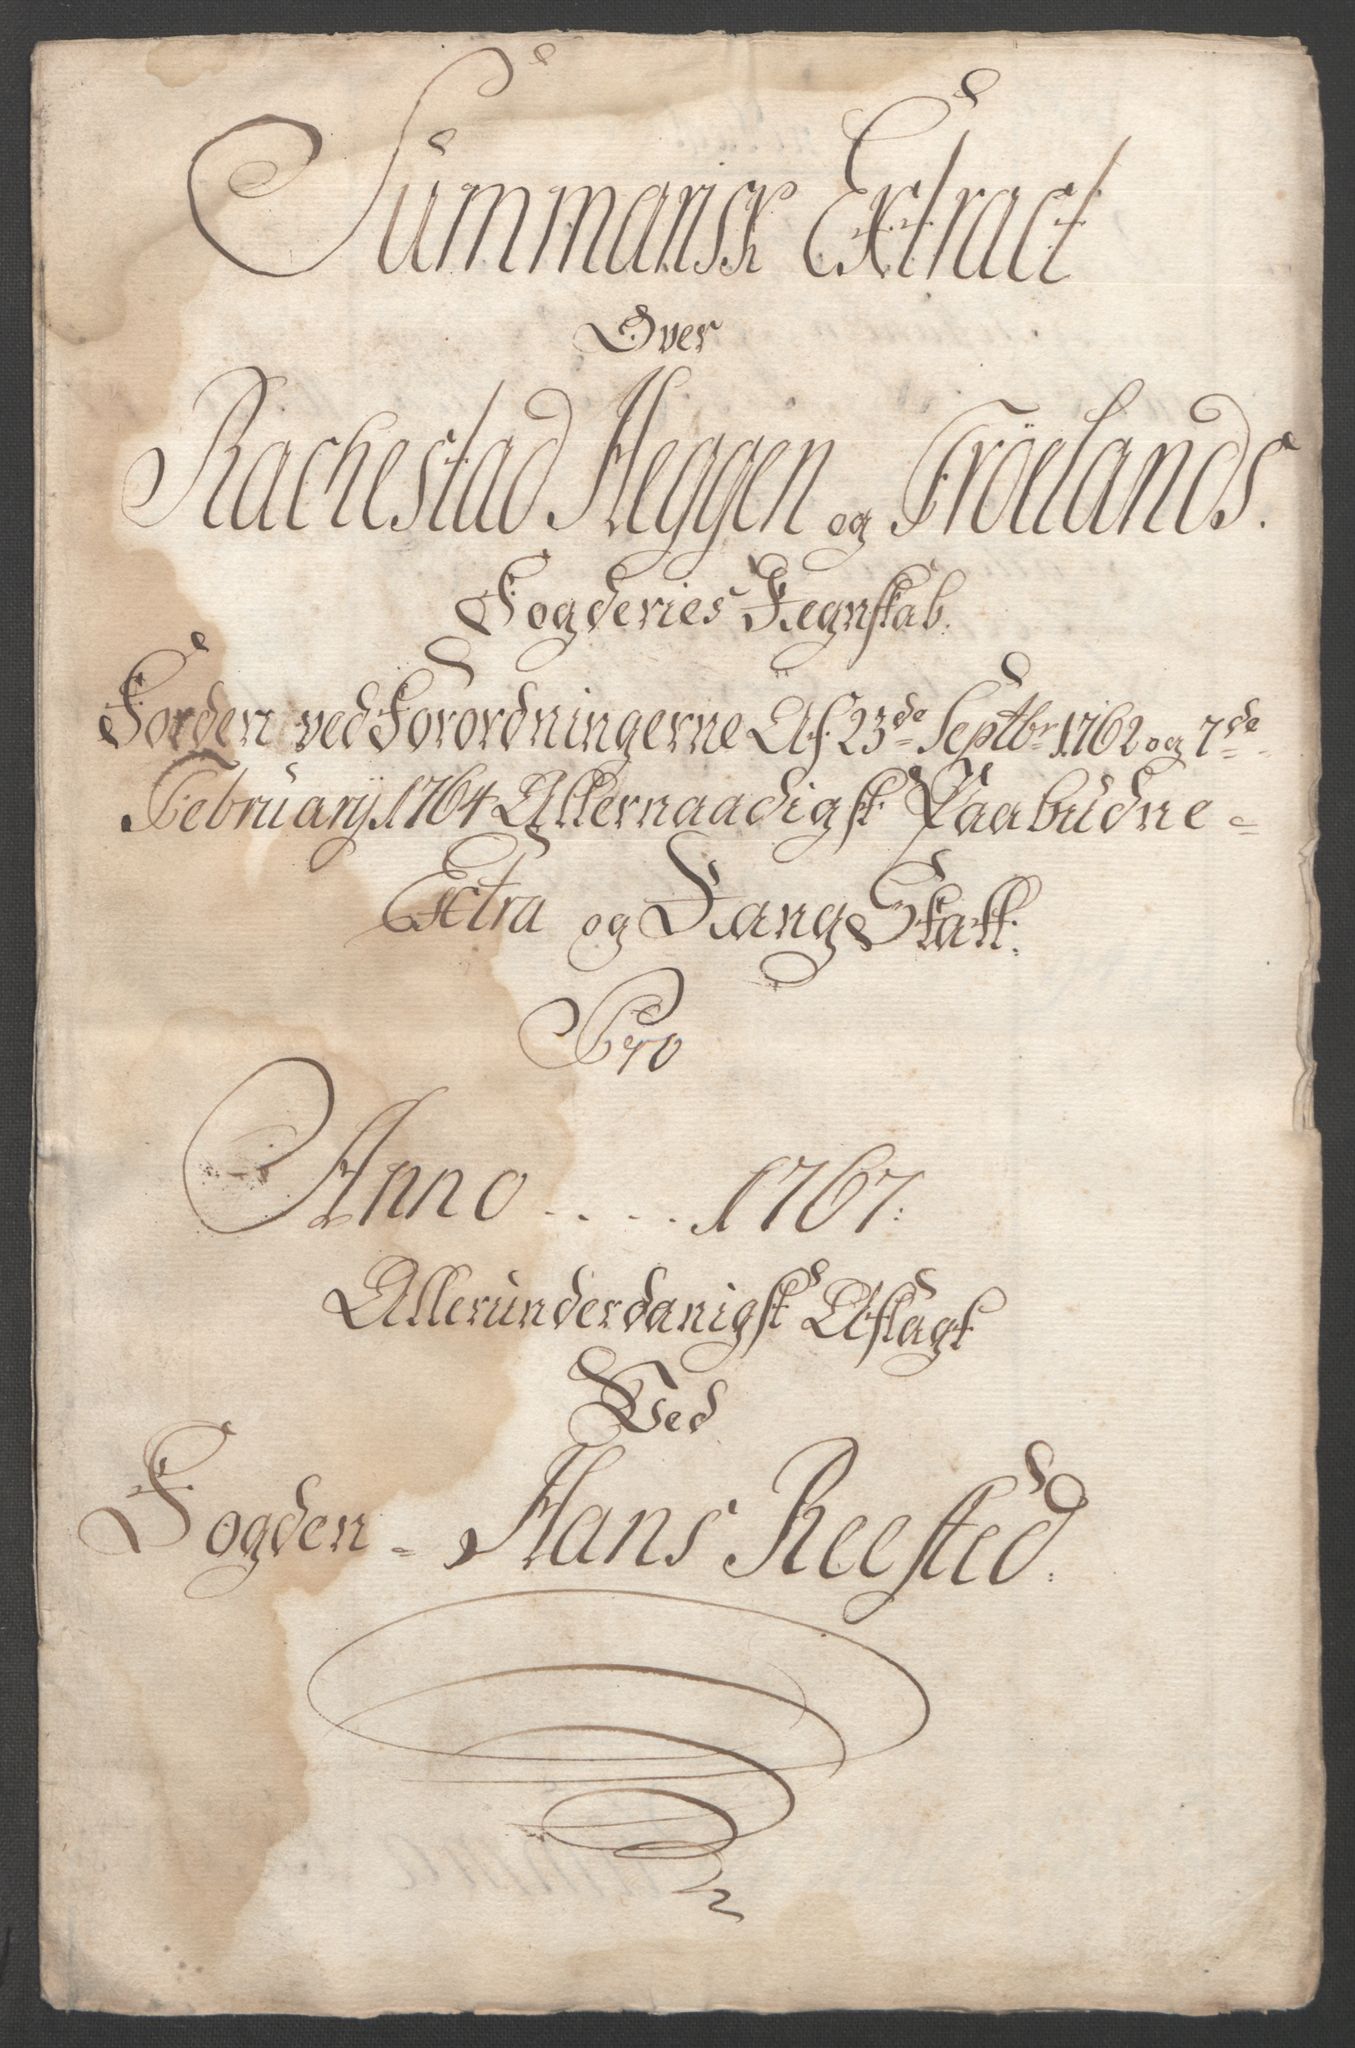 Summarisk Extract
Over
Rachestad Heggen og Frölands.
Fogderies Regnskab.
For den ved Forordningerne Af 23de Septbr 1762 og 7de
February 1764 Allernaadigst Paabudne
Extra og Rang Skatt.
Pro
Anno .... 1767:
Allerunderdanigst Aflagt
Ved
Fogden - Hans Reested.